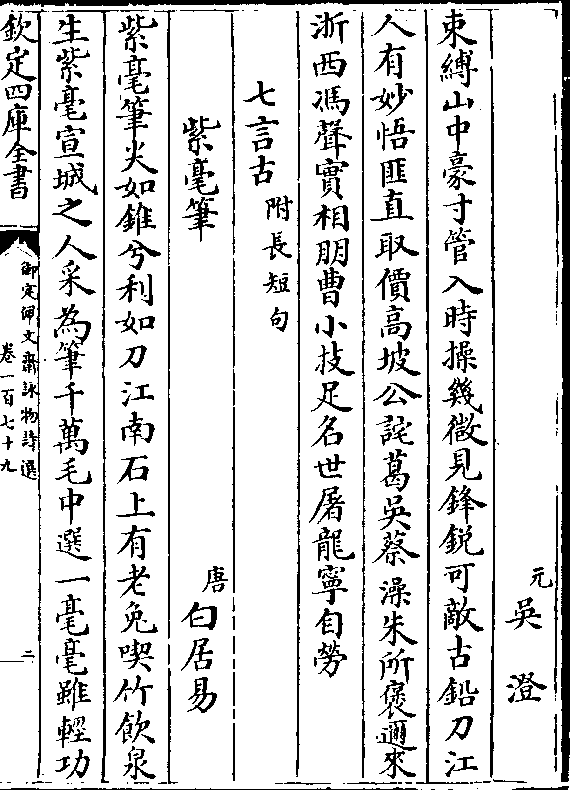 元吳澄
束縛山中豪寸管入時操幾微見鋒鋭可敵古鉛刀江
人有妙悟匪直取價高坡公詫葛吳蔡藻朱所褒邇來
浙西馮聲實相朋曹小技足名世屠龍寧自勞
七言古附長短句
紫毫筆
唐白居易
紫毫筆尖如錐兮利如刀江南石上有老兔喫竹飲泉
生紫毫宣城之人采為筆千萬毛中選一毫毫雖輕功
欽定四庫全書
御定佩文齋詠物詩選
卷一百七十九
二